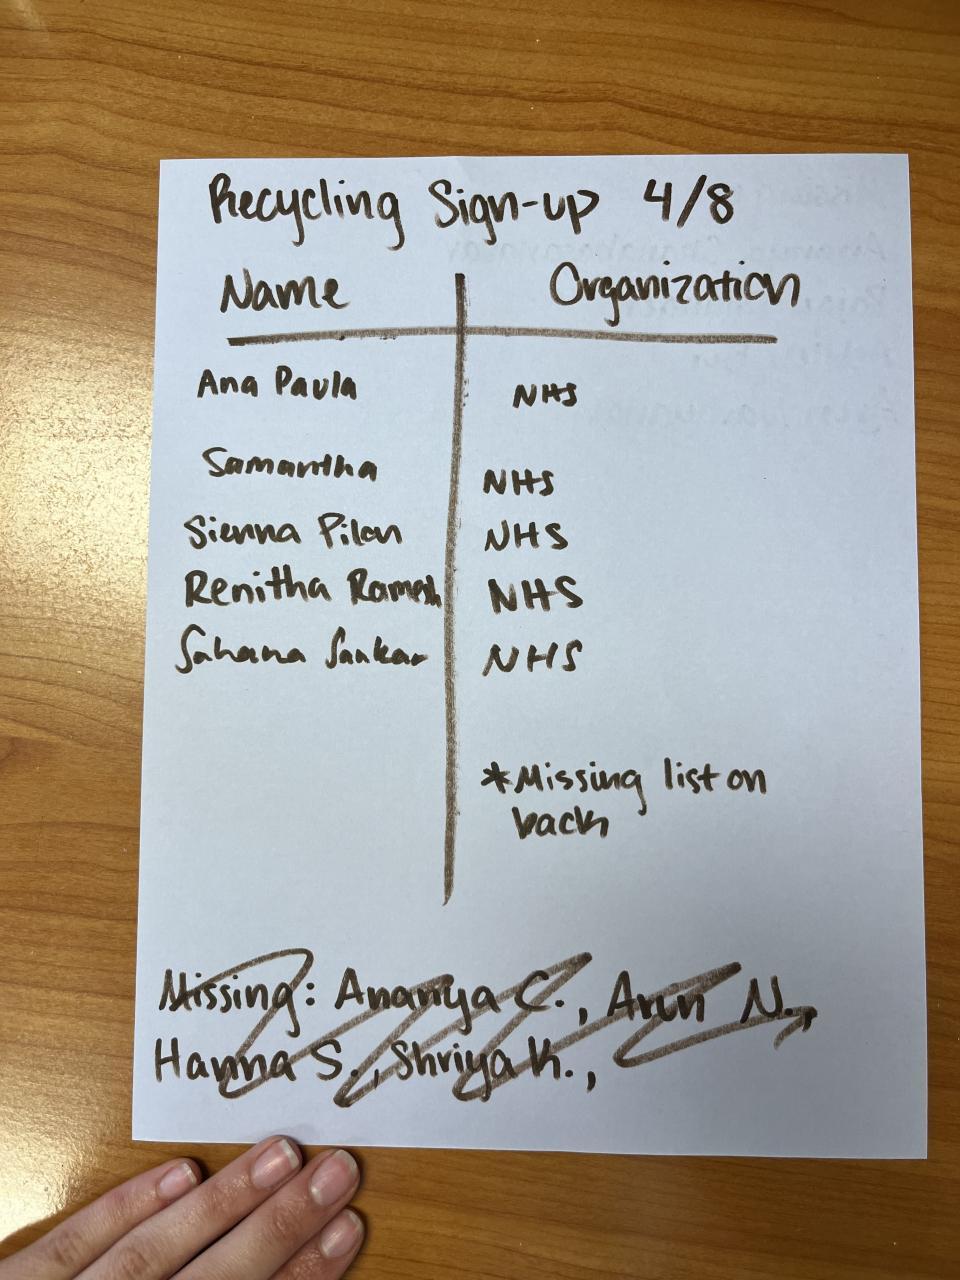 Recycling Sign-up 4/8
Name Organization
Ana Paula NHS
Samantha NHS
Sienna Pilon NHS
Renitha Ramesh NHS
Sahana Sankar NHS
*Missing list on
back
Missing: Ananya C., Arun N.,
Hanna S., Shriya K.,